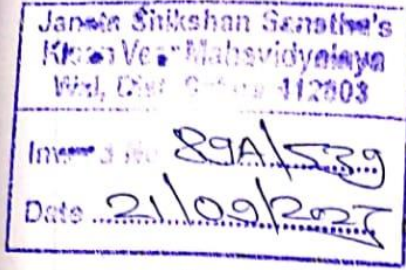 Janata Shikshan Sanstha's
Kisan Veer Mahavidyalaya
Wai, Dist. 412803
Inward No 89A/539
Date 21/09/202